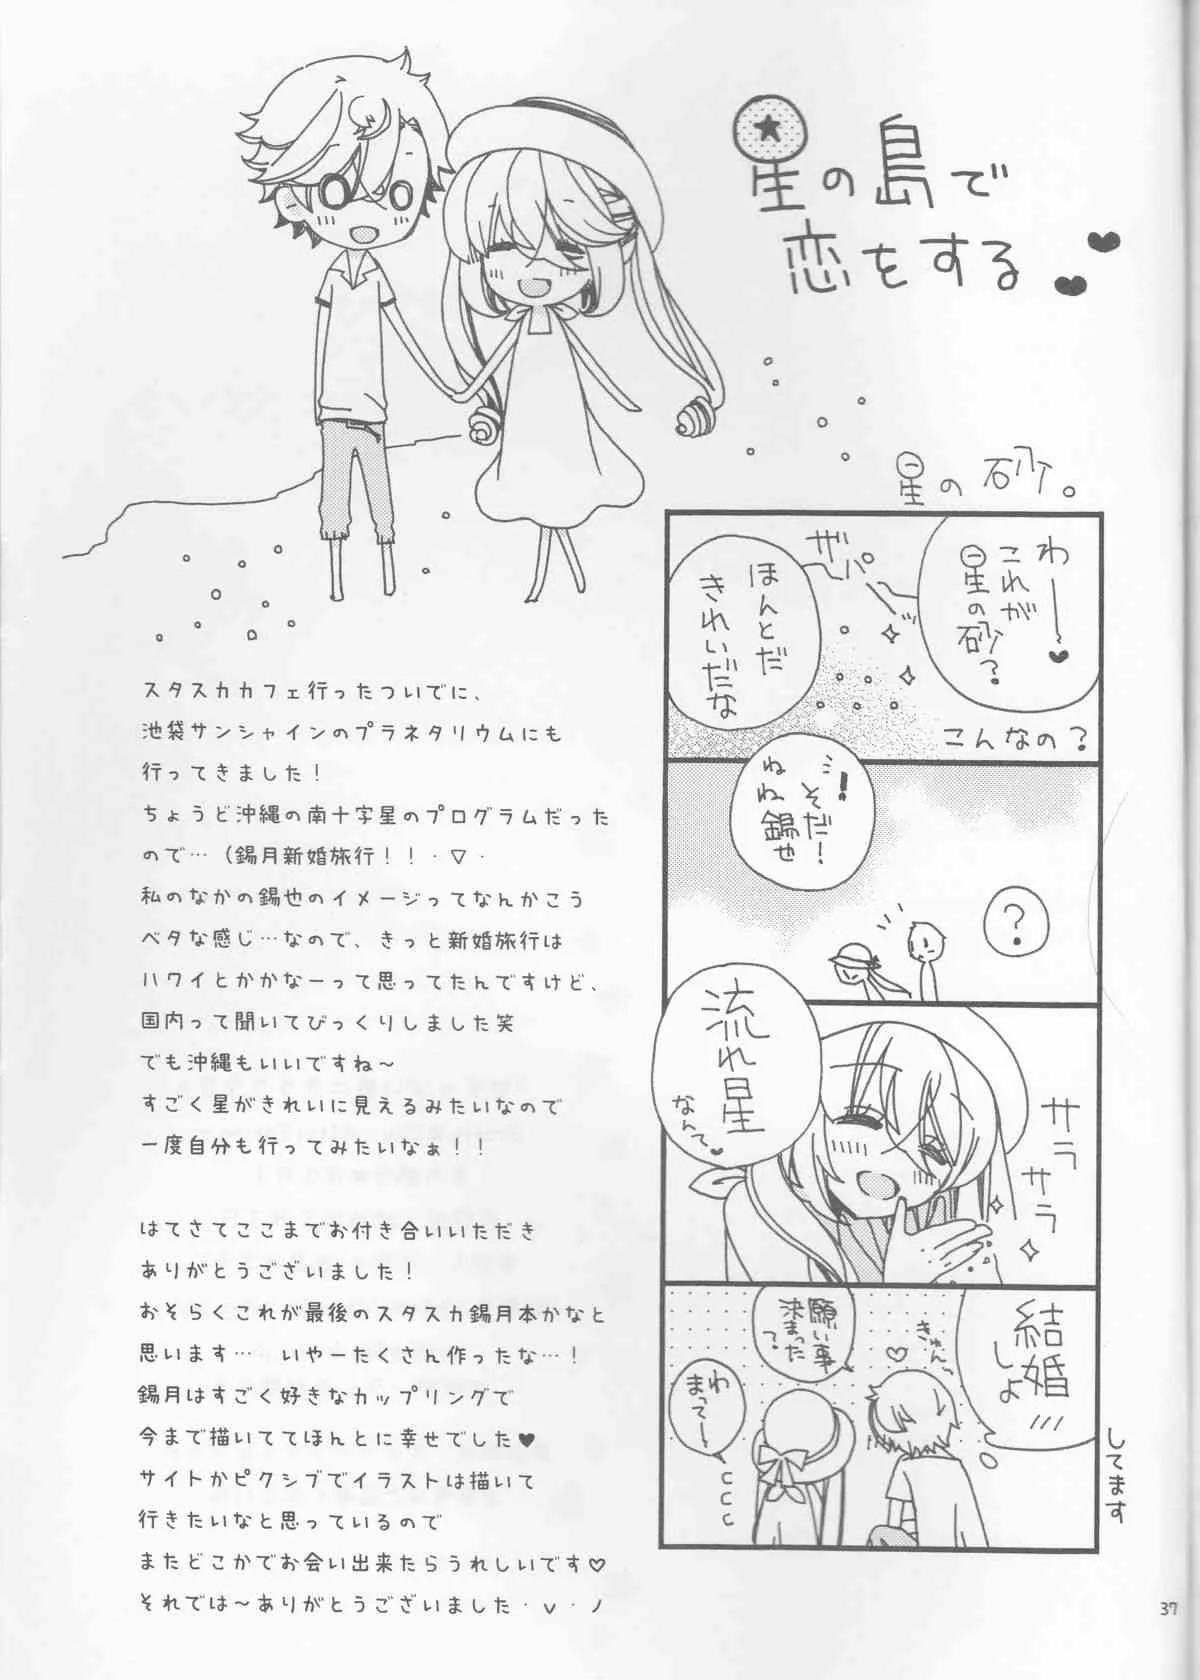 星の島で
恋をする
星の砂。
わーー♥
これが
星の砂?
ザパ°ーッ
ほんとだ
きれいだな
こんなの?
!そだ!
ねね錫也
?
流れ星
なんて♥
サラ
サラ
結婚
しよ
きゅん
願い事
決まった
?
わ
まってー
してます
スタスカカフェ行ったついでに、
池袋サンシャインのプラネタリウムにも
行ってきました!
ちょうど沖縄の南十字星のプログラムだった
ので…(錫月新婚旅行!!・▽・
私のなかの錫也のイメージってなんかこう
ベタな感じ…なので、きっと新婚旅行は
ハワイとかかなーって思ってたんですけど、
国内って聞いてびっくりしました笑
でも沖縄もいいですね~
すごく星がきれいに見えるみたいなので
一度自分も行ってみたいなぁ!!
はてさてここまでお付き合いいただき
ありがとうございました!
おそらくこれが最後のスタスカ錫月本かなと
思います…… いやーたくさん作ったな…!
錫月はすごく好きなカップリングで
今まで描いててほんとに幸せでした♥
サイトかピクシブでイラストは描いて
行きたいなと思っているので
またどこかでお会い出来たらうれしいです♡
それでは~ありがとうございました・v・ノ
37